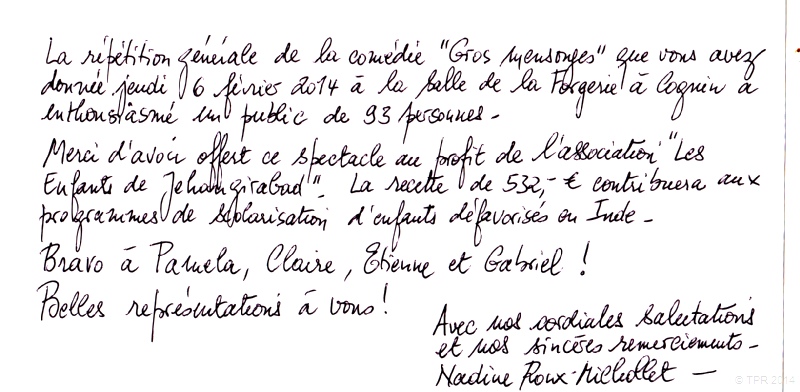 La répétition générale de la comédie "Gros mensonges" que vous avez
donnée jeudi 6 février 2014 à la salle de la Forgerie à Cognin a
enthousiasmé un public de 93 personnes.
Merci d'avoir offert ce spectacle au profit de l'association "Les
Enfants de Jehangirabad". La recette de 532,- € contribuera aux
programmes de scolarisation d'enfants défavorisés en Inde.
Bravo à Pamela, Claire, Etienne et Gabriel !
Belles représentations à vous !
Avec nos cordiales salutations
et nos sincères remerciements -
Nadine Roux-Michollet -
© TPR 2014